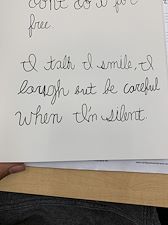 dont do it for
free.
I talk I smile, I
laugh but be careful
when I'm silent.